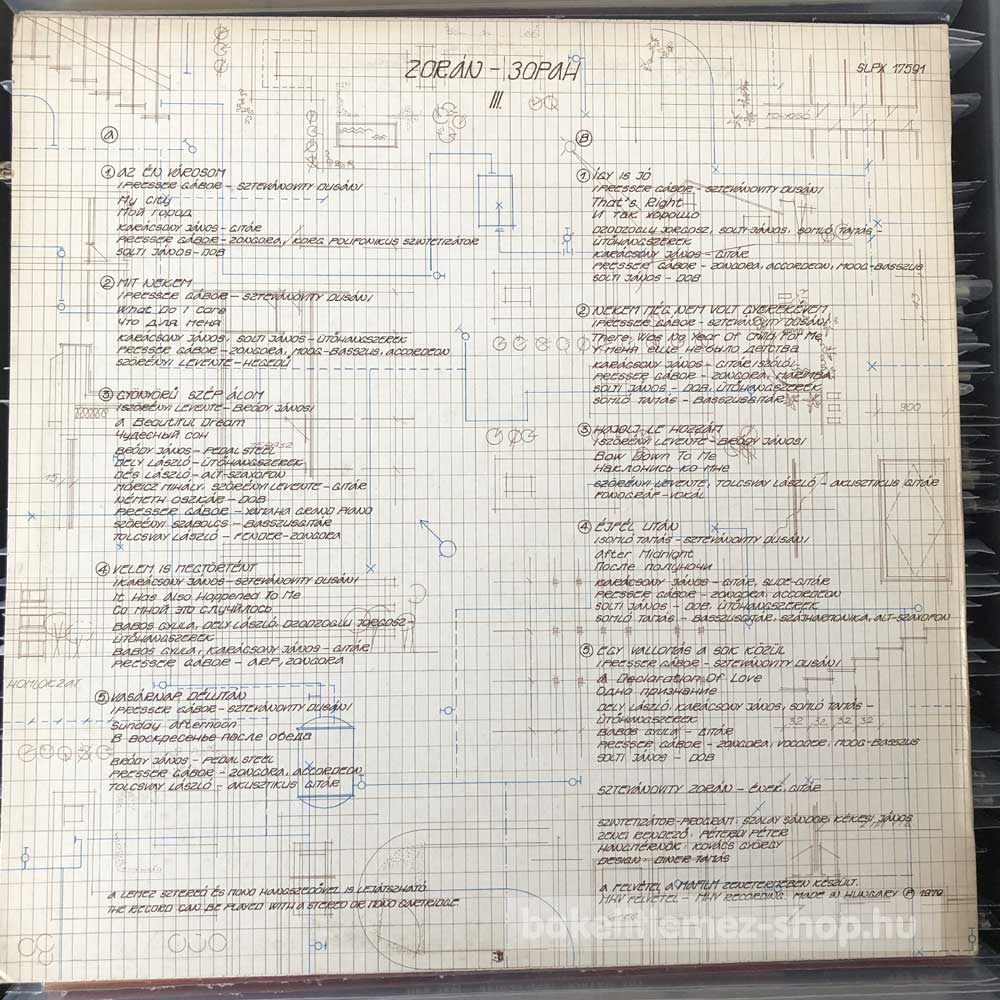 ZORÁN - ЗОРАН
III.
SLPX 17591
A
1 AZ ÉN VÁROSOM
(PRESSER GÁBOR - SZTEVÁNOVITY DUSÁN)
My City
Мой город
KARÁCSONY JÁNOS - GITÁR
PRESSER GÁBOR - ZONGORA, KORG POLIFONIKUS SZINTETIZÁTOR
SOLTI JÁNOS - DOB
2 MIT NEKEM
(PRESSER GÁBOR - SZTEVÁNOVITY DUSÁN)
What Do I Care
Что для меня
KARÁCSONY JÁNOS, SOLTI JÁNOS - ÜTŐHANGSZEREK
PRESSER GÁBOR - ZONGORA, MOOG-BASSZUS, ACCORDEON
SZÖRÉNYI LEVENTE - HEGEDŰ
3 GYÖNYÖRŰ SZÉP ÁLOM
(SZÖRÉNYI LEVENTE - BRÓDY JÁNOS)
A Beautiful Dream
Чудесный сон
BRÓDY JÁNOS - PEDAL STEEL
DELY LÁSZLÓ - ÜTŐHANGSZEREK
DÉS LÁSZLÓ - ALT-SZAXOFON
MÓRICZ MIHÁLY, SZÖRÉNYI LEVENTE - GITÁR
NÉMETH OSZKÁR - DOB
PRESSER GÁBOR - YAMAHA GRAND PIANO
SZÖRÉNYI SZABOLCS - BASSZUSGITÁR
TOLCSVAY LÁSZLÓ - FENDER-ZONGORA
4 VELEM IS MEGTÖRTÉNT
(KARÁCSONY JÁNOS - SZTEVÁNOVITY DUSÁN)
It Has Also Happened To Me
Со мной это случилось
BABOS GYULA, DELY LÁSZLÓ, DZODZOGLU JORGOSZ -
ÜTŐHANGSZEREK
BABOS GYULA, KARÁCSONY JÁNOS - GITÁR
PRESSER GÁBOR - ARP, ZONGORA
HOMLOKZAT
5 VASÁRNAP DÉLUTÁN
(PRESSER GÁBOR - SZTEVÁNOVITY DUSÁN)
Sunday Afternoon
В воскресенье после обеда
BRÓDY JÁNOS - PEDAL STEEL
PRESSER GÁBOR - ZONGORA, ACCORDEON
TOLCSVAY LÁSZLÓ - AKUSZTIKUS GITÁR
A LEMEZ SZTEREÓ ÉS MONO HANGSZEDŐVEL IS LEJÁTSZHATÓ.
THE RECORD CAN BE PLAYED WITH A STEREO OR MONO CARTRIDGE
B
1 ÍGY IS JÓ
(PRESSER GÁBOR - SZTEVÁNOVITY DUSÁN)
That's Right
И так хорошо
DZODZOGLU JORGOSZ, SOLTI JÁNOS, SOMLÓ TAMÁS -
ÜTŐHANGSZEREK
KARÁCSONY JÁNOS - GITÁR
PRESSER GÁBOR - ZONGORA, ACCORDEON, MOOG-BASSZUS
SOLTI JÁNOS - DOB
2 NEKEM MÉG NEM VOLT GYEREKÉVEM
(PRESSER GÁBOR - SZTEVÁNOVITY DUSÁN)
There Was No Year Of Child For Me
У меня еще не было детства
KARÁCSONY JÁNOS - GITÁR (SZÓLÓ)
PRESSER GÁBOR - ZONGORA, MARIMBA
SOLTI JÁNOS - DOB, ÜTŐHANGSZEREK
SOMLÓ TAMÁS - BASSZUSGITÁR
900
3 HAJOLJ LE HOZZÁM
(SZÖRÉNYI LEVENTE - BRÓDY JÁNOS)
Bow Down To Me
Наклонись ко мне
SZÖRÉNYI LEVENTE, TOLCSVAY LÁSZLÓ - AKUSZTIKUS GITÁR
FONOGRÁF - VOKÁL
4 ÉJFÉL UTÁN
(SOMLÓ TAMÁS - SZTEVÁNOVITY DUSÁN)
After Midnight
После полуночи
KARÁCSONY JÁNOS - GITÁR, SLIDE-GITÁR
PRESSER GÁBOR - ZONGORA, ACCORDEON
SOLTI JÁNOS - DOB, ÜTŐHANGSZEREK
SOMLÓ TAMÁS - BASSZUSGITÁR, SZÁJHARMONIKA, ALT-SZAXOFON
5 EGY VALLOMÁS A SOK KÖZÜL
(PRESSER GÁBOR - SZTEVÁNOVITY DUSÁN)
A Declaration Of Love
Одно признание
DELY LÁSZLÓ, KARÁCSONY JÁNOS, SOMLÓ TAMÁS -
ÜTŐHANGSZEREK
BABOS GYULA - GITÁR
PRESSER GÁBOR - ZONGORA, VOCODER, MOOG-BASSZUS
SOLTI JÁNOS - DOB
SZTEVÁNOVITY ZORÁN - ÉNEK, GITÁR
SZINTETIZÁTOR-PROGRAM: SZALAY SÁNDOR, KÉKESI JÁNOS
ZENEI RENDEZŐ: PÉTERDI PÉTER
HANGMÉRNÖK: KOVÁCS GYÖRGY
DESIGN: DINER TAMÁS
A FELVÉTEL A MAFILM ZENETERMÉBEN KÉSZÜLT.
MHV FELVÉTEL - MHV RECORDING. MADE IN HUNGARY Ⓟ 1979
bakelitlemez-shop.hu